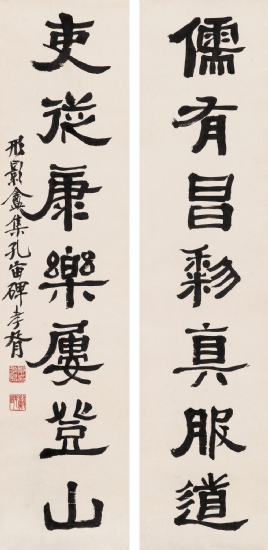 儒有昌黎真服道
吏從康樂屢登山
形影盦集孔宙碑孝胥